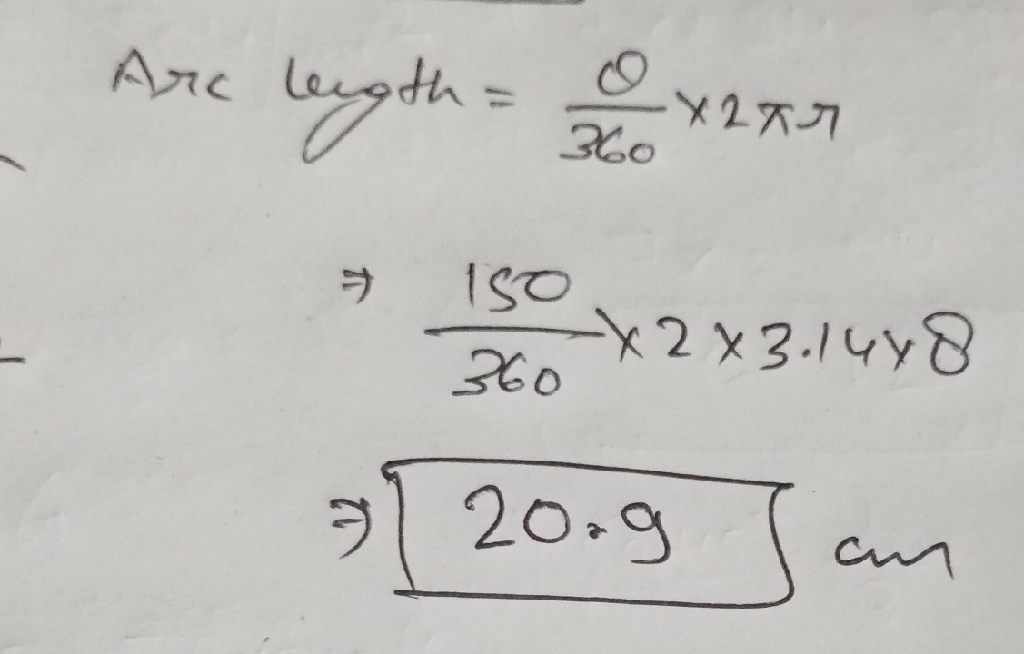 Arc length = θ/360 × 2πr
⇒ 150/360 × 2 × 3.14 × 8
⇒ 20.9 cm